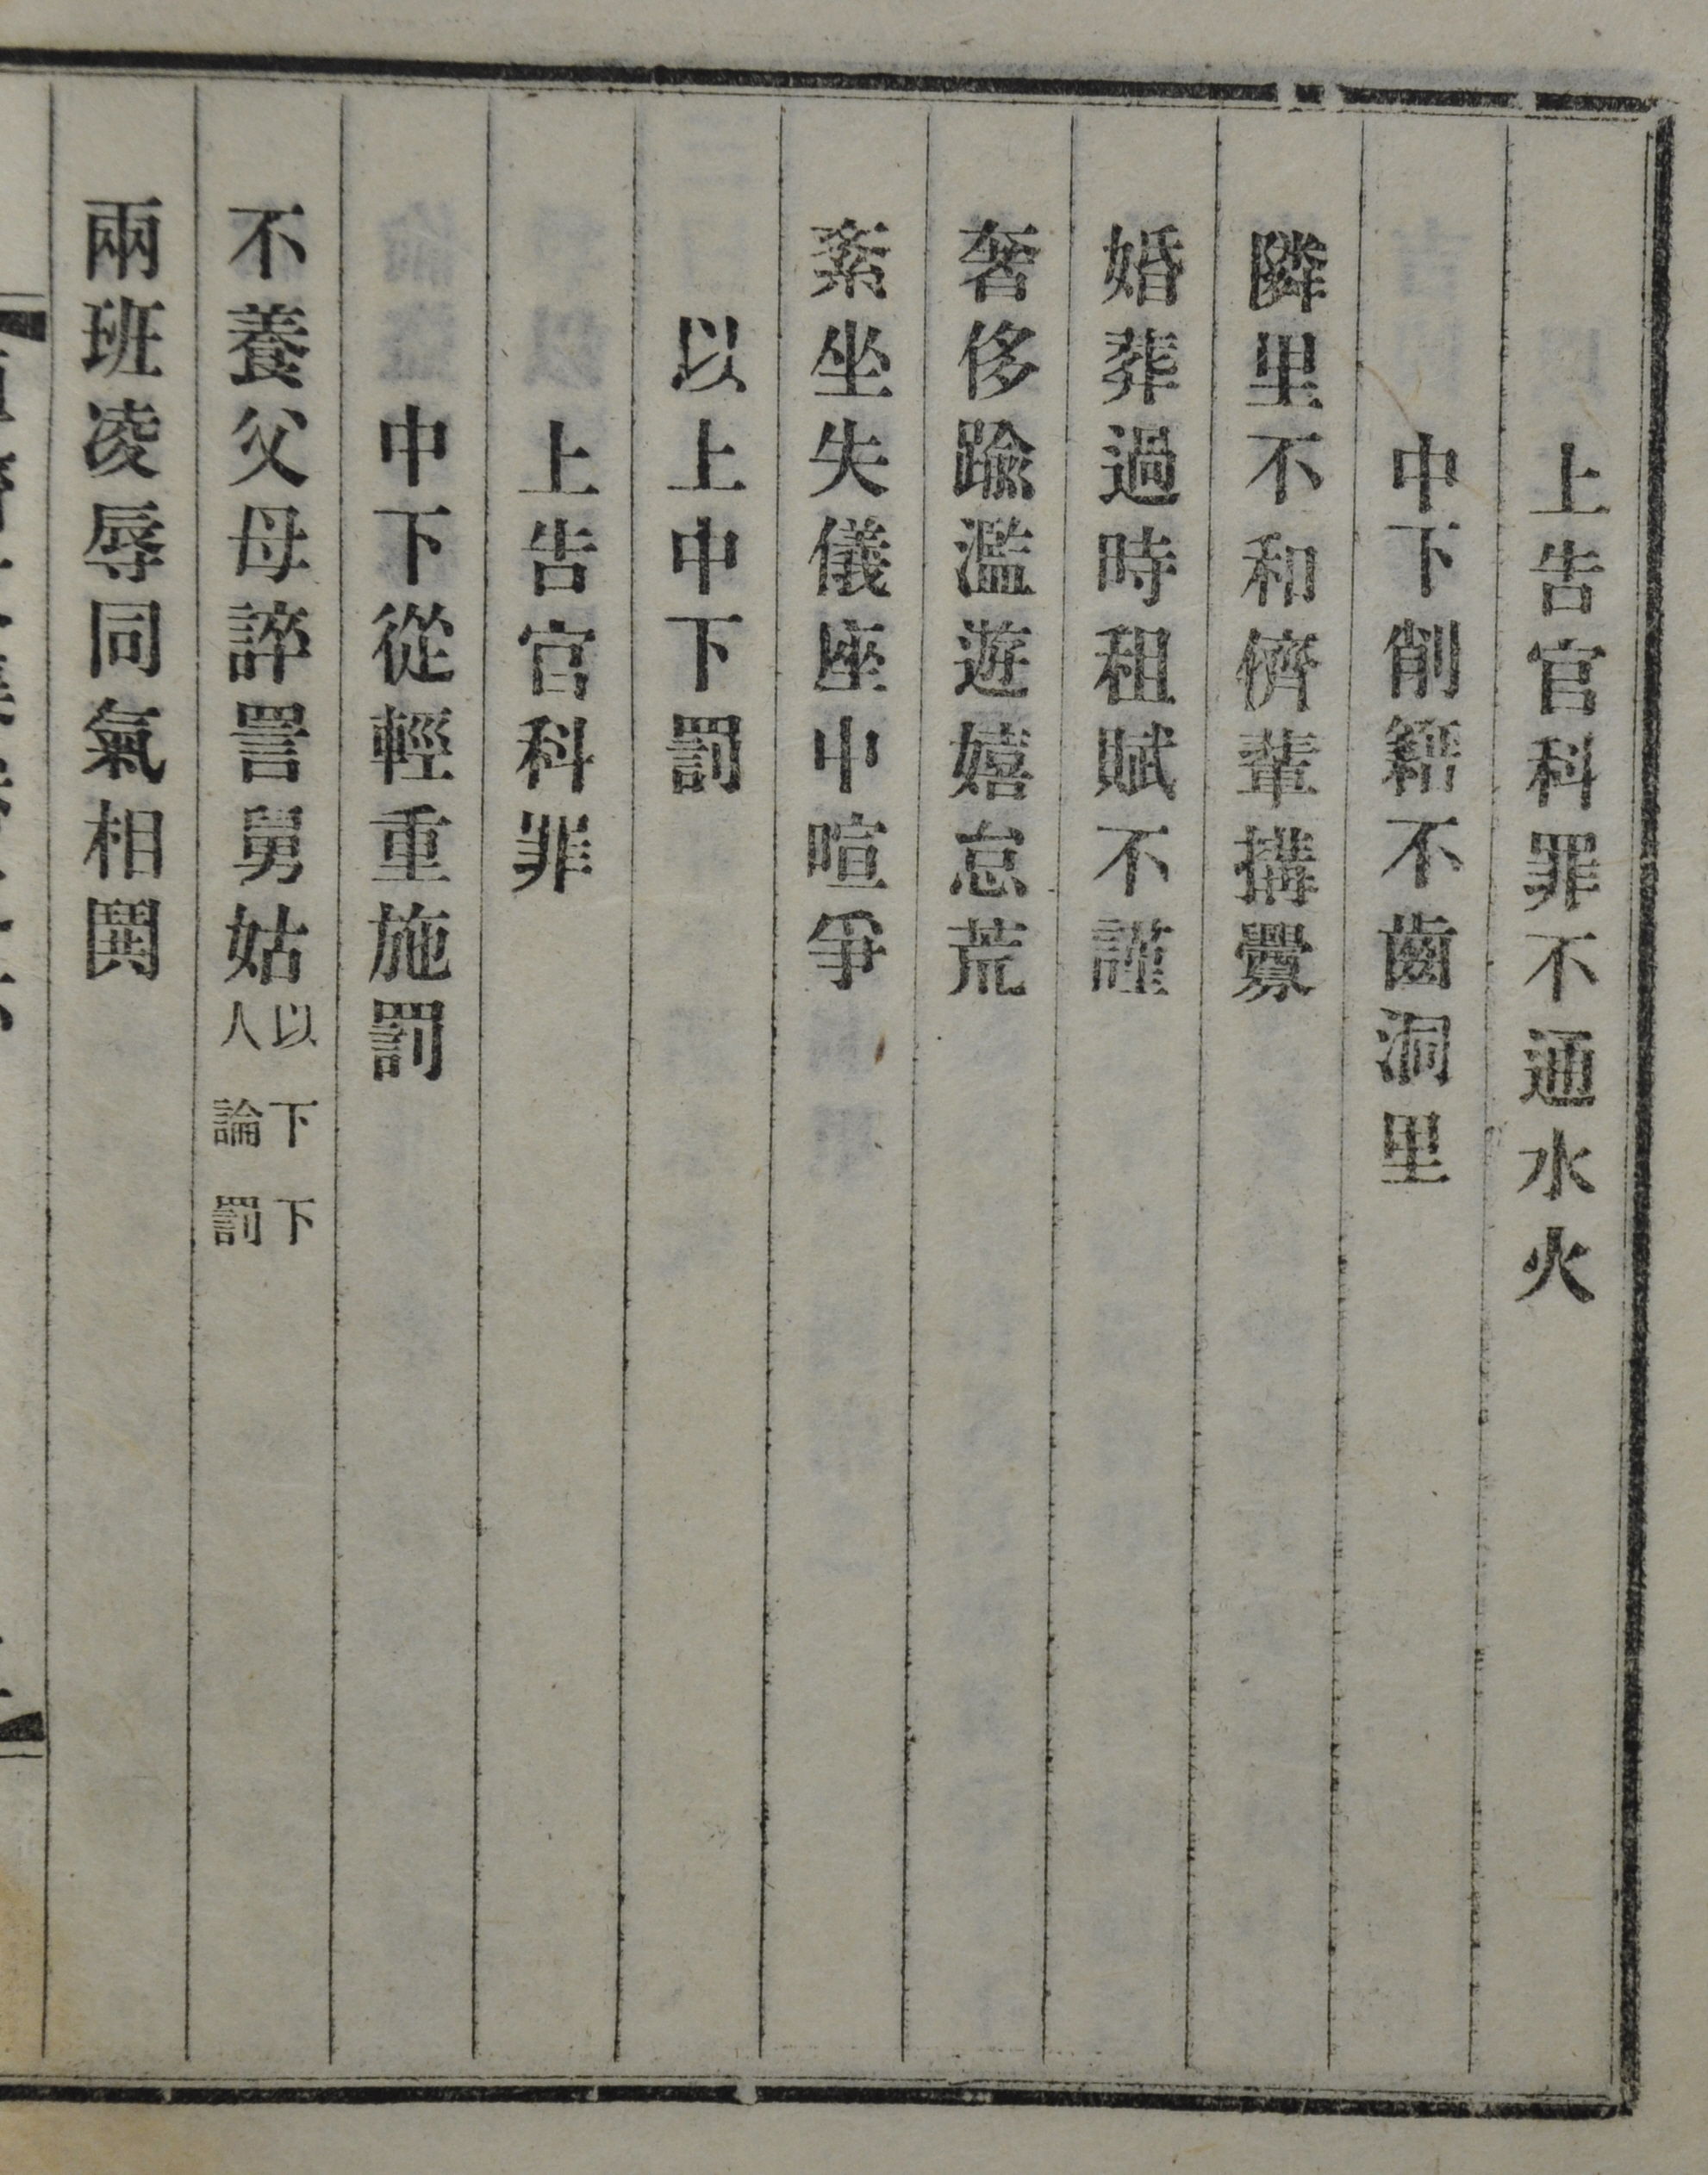 上告官科罪不通水火
中下削籍不齒洞里
隣里不和儕輩搆釁
婚葬過時租賦不謹
奢侈踰濫遊嬉怠荒
紊坐失儀座中喧爭
以上中下罰
上告官科罪
中下從輕重施罰
不養父母誶詈舅姑以下下人論罰
兩班凌辱同氣相鬨